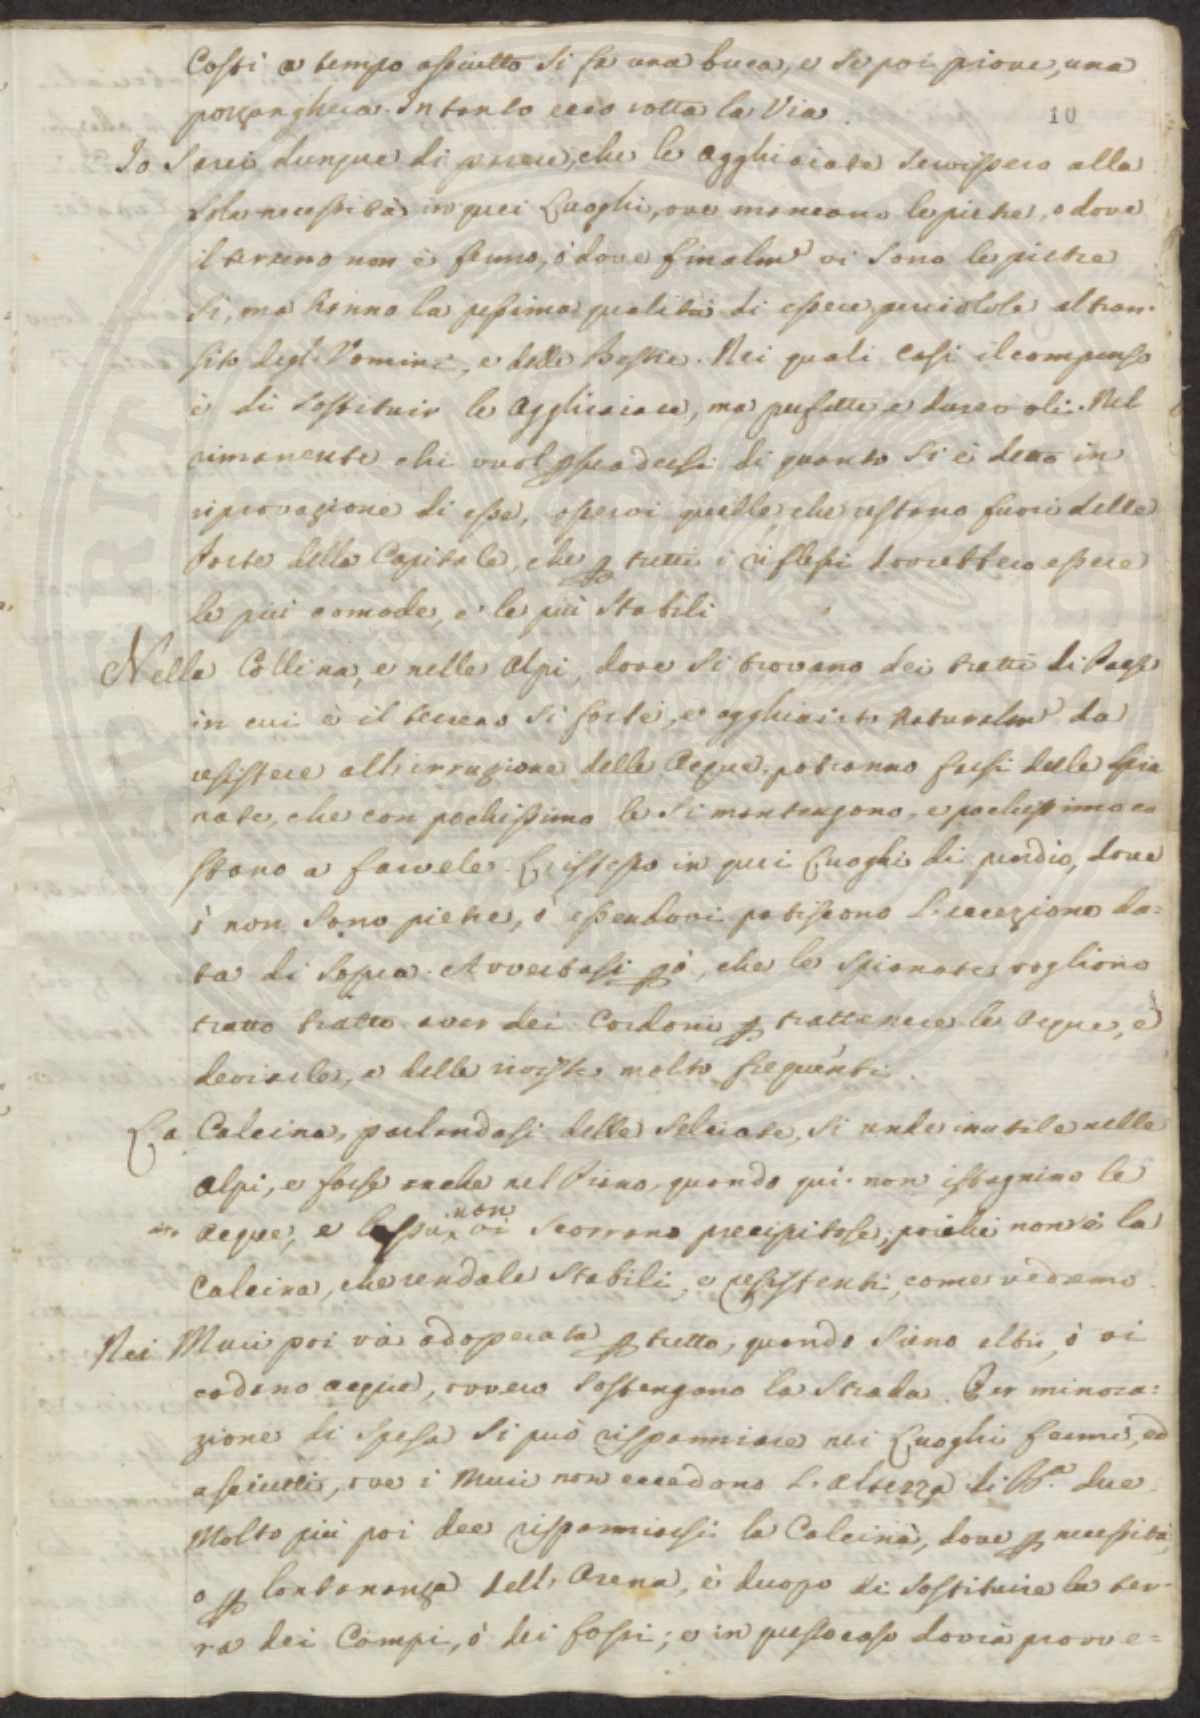 Costì a tempo asciutto si fa una buca, e se poi piove, una
pozzanghera. Intanto ecco rotta la Via.
10
Io sarei dunque di parere, che le agghiaiate servissero alla
sola necessità in quei Luoghi, ove mancano le pietre, o dove
il terreno non è fermo, ò dove finalm.e vi sono le pietre
si, ma hanno la pessima qualità di essere sdrucciolose al tran-
sito degl'Uomini, e delle Bestie. Nei quali casi il compenso
è di sostituir le agghiaiate, ma perfette e durevoli. Nel
rimanente chi vuol psuadersi di quanto si è detto in
riprovazione di esse, osservi quelle, che restano fuori delle
Porte della Capitale, che p tutti i riflessi dovrebbero essere
le più comode, e le più stabili
Nelle Collina, e nelle Alpi, dove si trovano dei tratti di Paese
in cui è il terreno si forte, e agghiaiato naturalm.e da
resistere all'irruzione delle Acque, potranno farsi delle spia
nate, che con pochissimo le si mantengono, e pochissimo co
stano a farvele. L'istesso in quei Luoghi di pendio, dove
ò non sono pietre, ò essendovi patiscono l'eccezione da=
ta di sopra. Avvertasi pò, che le spianate vogliono
tratto tratto aver dei Cordoni p trattenere le acque, e
deviarle, e delle riviste molto frequenti.
La Calcina, parlandosi delle selciate, si rende inutile nelle
Alpi, e forse anche nel Piano, quando quì non istagnino le
acque, e lassù non vi scorrano precipitose; poichè non è la
Calcina, che rendale stabili, e resistenti, come vedremo.
Nei Muri poi và adoperata p tutto, quando siano alti, ò vi
cadano acque, ovvero sostengano la Strada. Per minora=
zione di spesa si può risparmiare nei Luoghi fermi, ed
asciutti, ove i Muri non eccedono l'altezza di B.a due.
Molto più poi dee risparmiarsi la Calcina, dove p necessità,
o p lontananza dell'Arena, è duopo di sostituire la ter-
ra dei Campi, ò dei fossi; e in questo caso dovrà provve=